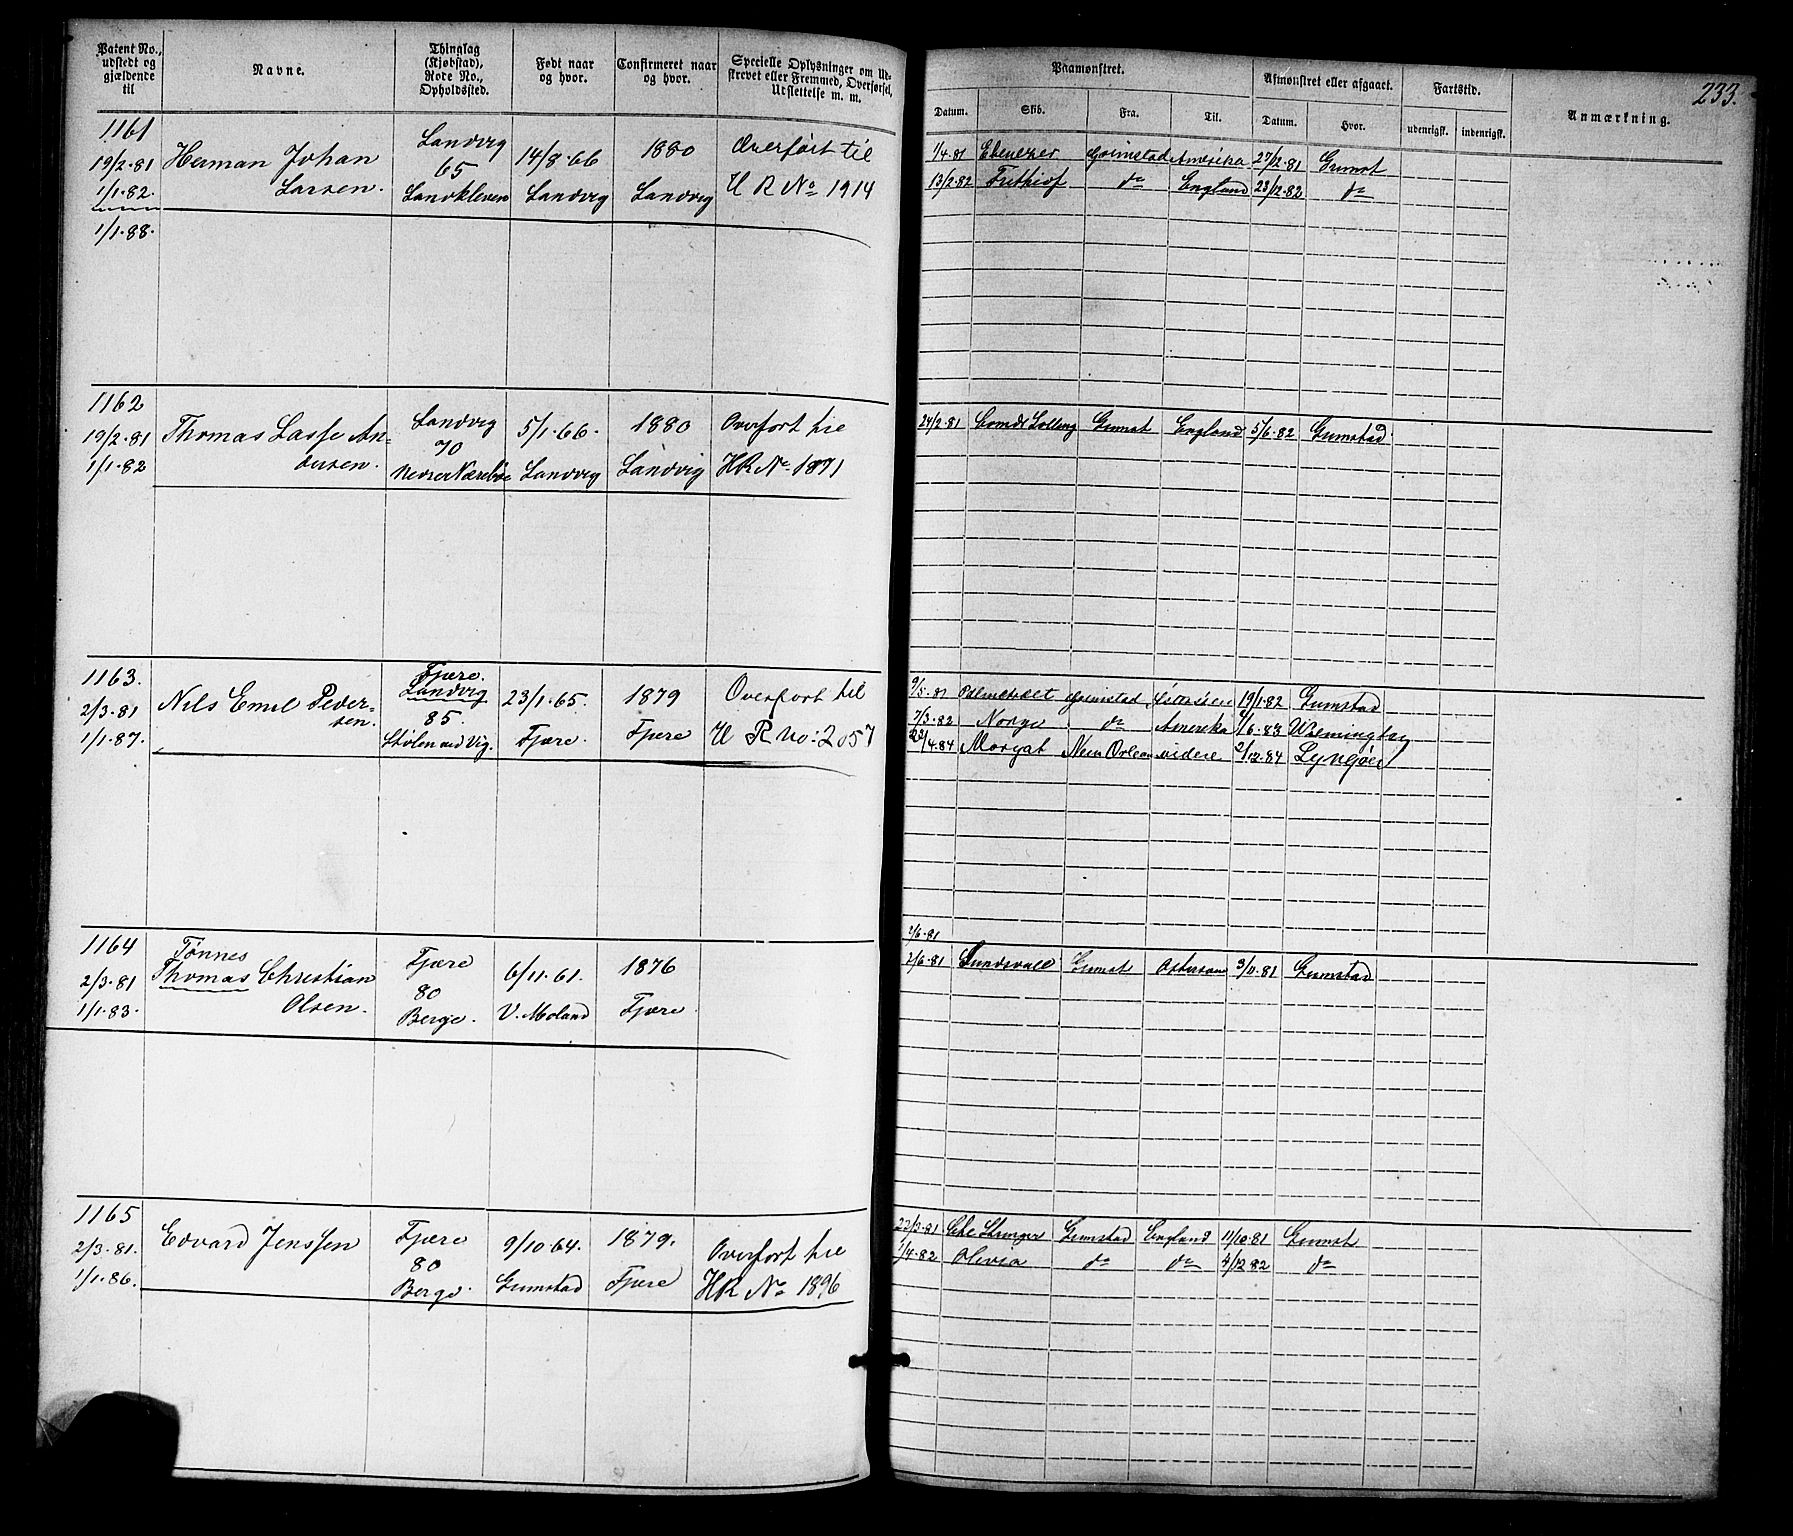 233.
Patent No., udstedt og gjældende til
Navne.
Thinglag (Kjøbstad), Rode No., Opholdssted.
Født naar og hvor.
Confirmeret naar og hvor.
Specielle Oplysninger om Udskrevet eller Fremmed, Overførsel, Udslettelse m. m.
Paamønstret.
Datum. Skib. Fra. Til.
Afmønstret eller afgaaet.
Datum. Hvor.
Fartstid.
udenrigsk. indenrigsk.
Anmærkning.
1161
19/2.81
1/1.82.
1/1.88.
Herman Johan
Larsen.
Landvig
65
Landkleven
14/8.66
Landvig
1880
Landvig
Overført til
H R No 1914
1/4.81 Ebenezer Grimstad Amerika 27/12.81 Grimst
13/2.82 Frithiof do England 23/12.82 do
1162
19/2.81
1/1.82
Thomas Lasse An-
dersen.
Landvig
70
Nedre Nærebøe
5/1.66.
Landvig
1880
Landvig
Overført til
HR No 1871
24/2.81 Grimst England 5/6.82 Grimstad
1163.
2/3.81
1/1.87.
Nils Emil Peder-
sen.
Fjære.
Landvig
85.
Stølen ved Vig.
23/1.65.
Fjære.
1879
Fjære
Overført til
H R No: 2057
9/5.81 Grimstad 19/1.82 Grimstad
7/3.82 Norge do Amerika 1/6.83 Wilmington
22/4.84 New Orleans videre 2/12.84 Lyngøer
1164
2/3.81
1/1.83.
Tønnes
Thomas Christian
Olsen.
Fjære
80
Berge.
6/11.61.
V. Moland
1876
Fjære
2/6.81
2/6.81 Sundsvall Grimst 3/11.81 Grimstad
1165
2/3.81.
1/1.86.
Edvard Jenssen
Fjære
80
Berge.
9/10.64.
Grimstad
1879.
Fjære
Overført til
HR No 1896
22/3.81 Grimstad England 11/10.81 Grimst
1/4.82 Olivia do do 4/12.82 do